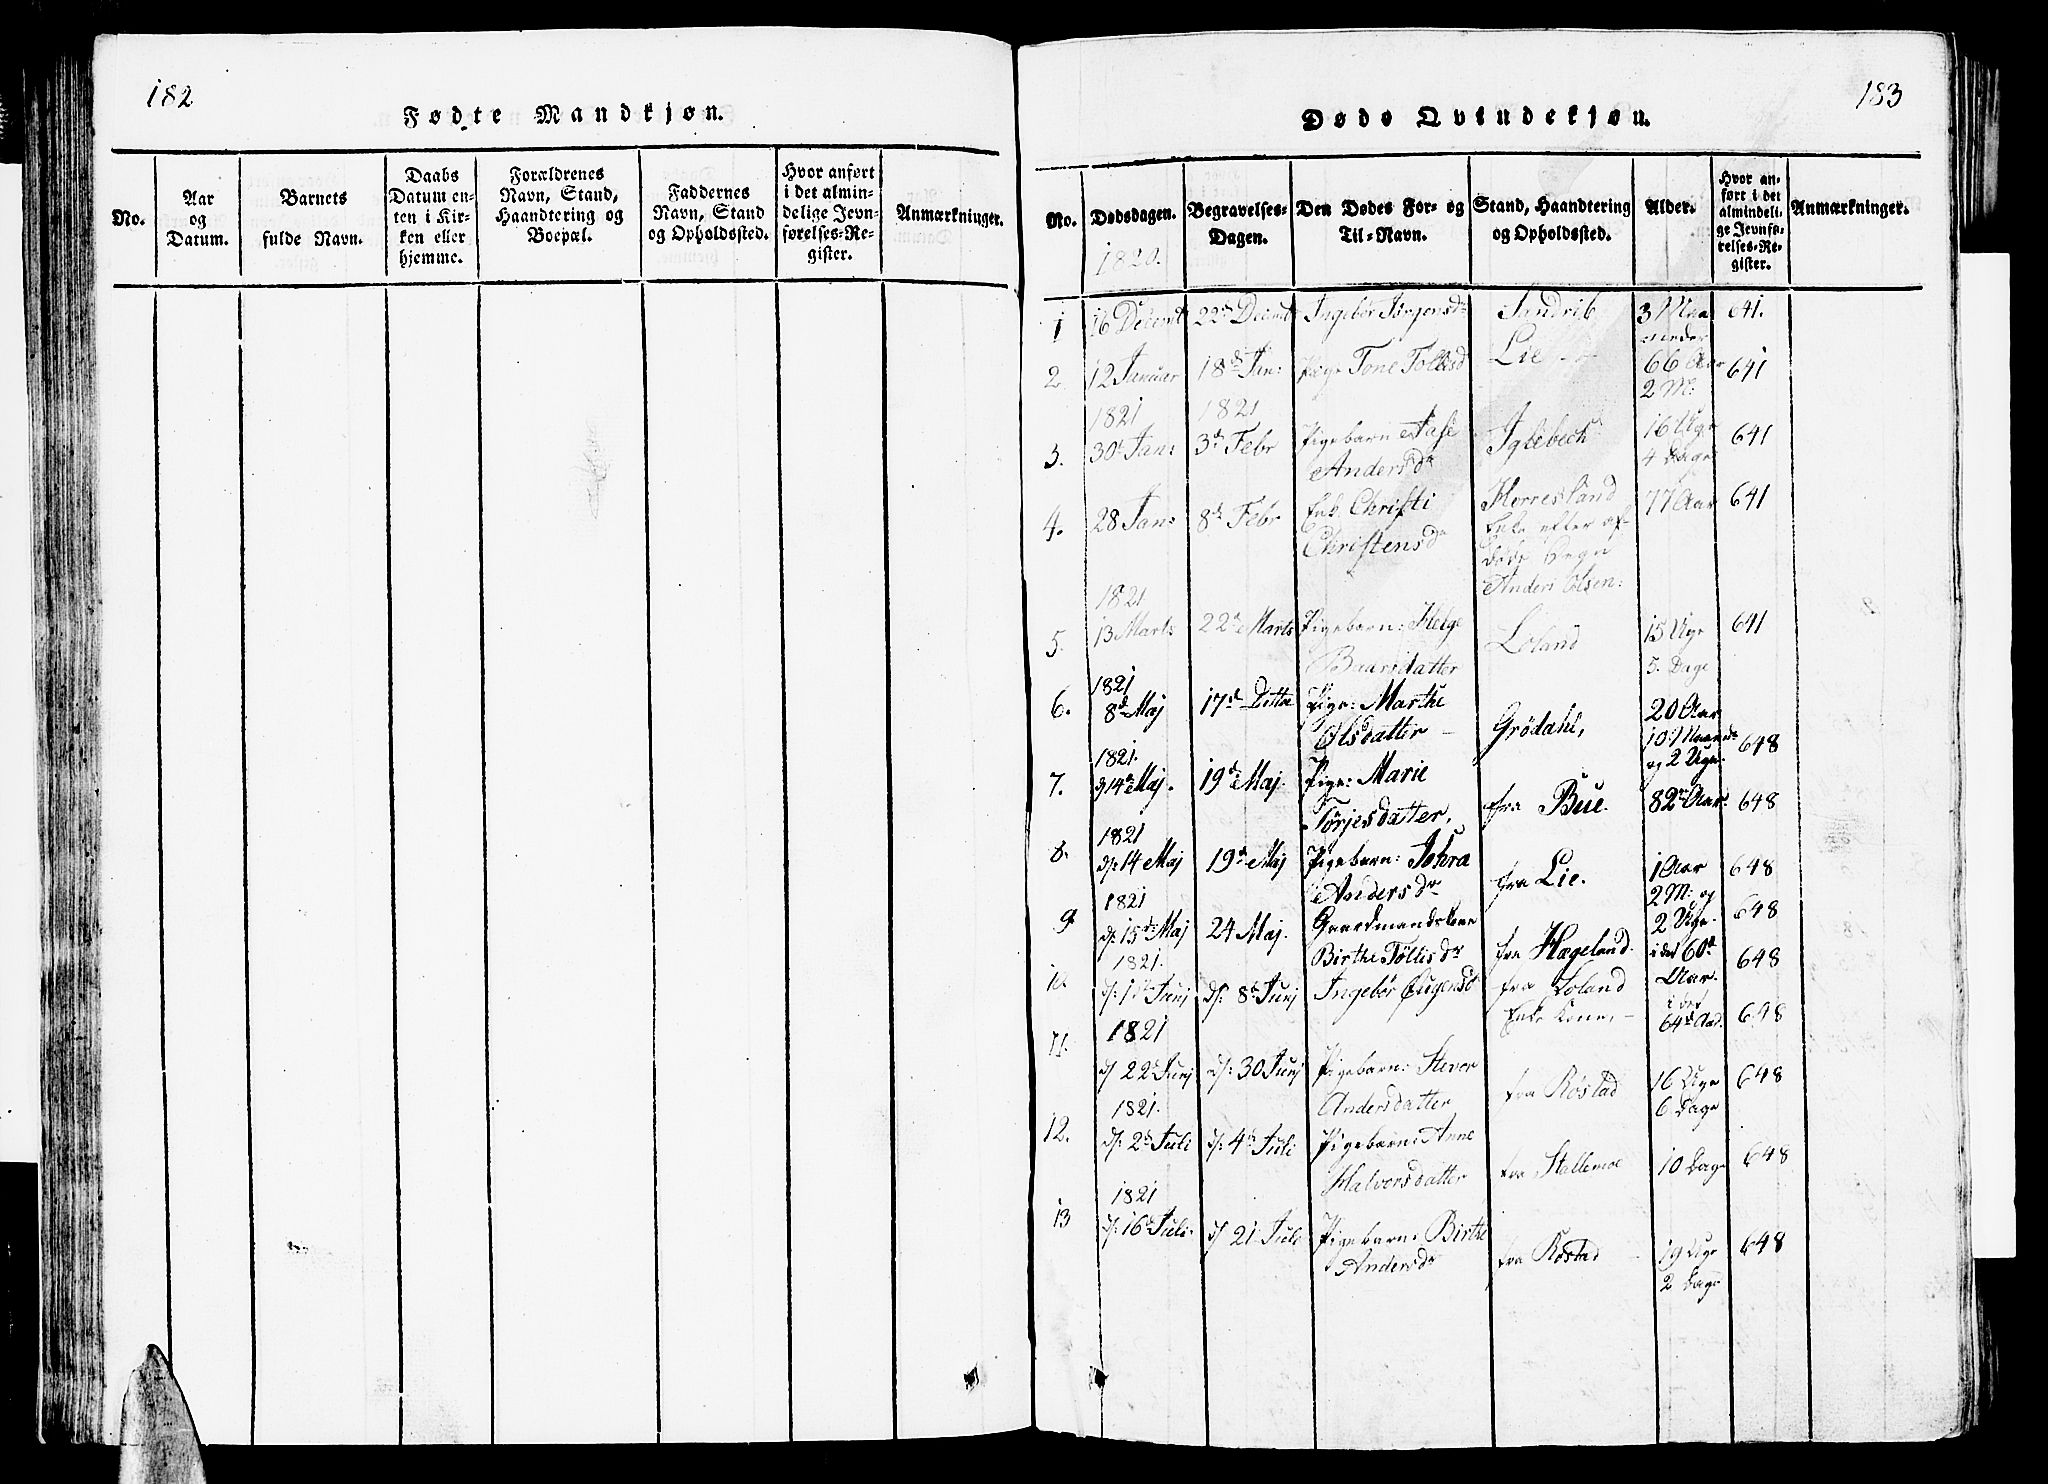 182
Fødte Mandkjøn.
No.
Aar
og
Datum.
Barnets
fulde Navn.
Daabs
Datum en-
ten i Kir-
ken eller
hjemme.
Forældrenes
Navn, Stand,
Haandtering og
Boepæl.
Faddernes
Navn, Stand
og Opholdssted.
Hvor anført
i det almin-
delige Jevn-
førelses-Re-
gister.
Anmærkninger.
183
Døde Qvindekjøn.
No.
Dødsdagen.
1820.
Begravelses-
Dagen.
Den Dødes For- og
Til-Navn.
Stand, Haandtering
og Opholdssted.
Alder.
Hvor an-
ført i det
almindeli-
ge Jevnfø-
relses-Re-
gister.
Anmærkninger.
1 16 Decembr 22de Decmbr Ingebør Jørgensdr 3 Maa 641.
neder
2 12 Januar 18de Jan: Pige Tone Tollisd Lie 66 Aar 641
2 M:
1821 1821
3. 30te Jan: 3de Febr Pigebarn Aase Iglebech 16 Uger 641
Andersdr 4 Dage
4. 28 Jan: 8de Febr Enk. Christi Herresland 77 Aar 641
Christensdr Enke efter af-
døde
Anders Olsen:
1821
5. 13 Marts 22de Marts Pigebarn: Helge Loland 15 Uge 641
Baarsdatter 5. Dage
1821
6. 8de Maj 17de Ditto Pige: Marthe Grödahl, 20 Aar 648
Olsdatter – 10 Maaneder
og 2 Uger.
1821.
7. 14de Maj. 19de Maj. Pige: Marie fra Bue. 82 Aar. 648
Tørjesdatter.
1821
8. d: 14 Maj 19de Maj Pigebarn: Johra fra Lie. 1 Aar 648
Andersdr 2 M: og
2 Uge.
1821
9 d: 15de Maj 24 Maj. Gaardmandskone fra Hægeland. i det 60de 648
Birthe Tøllisdr Aar.
1821.
10 d: Junj d: 8de Junj Ingebør fra Loland i det 648
Enke Kone, – 64de Aar. 648
1821
11. d 22de Junj d: 30 Junj Pigebarn: fra Röstad 16 Uge 648
Andersdatter 6 Dage
1821.
12. d: 2de Juli d: 4de Juli Pigebarn: Anne fra Stallemoe 10 Dage 648
Halvorsdatter
1821
13 d: 16de Juli. d 21 Juli Pigebarn: Birthe fra Röstad 19 Uge 648
Andersdr 2 Dage